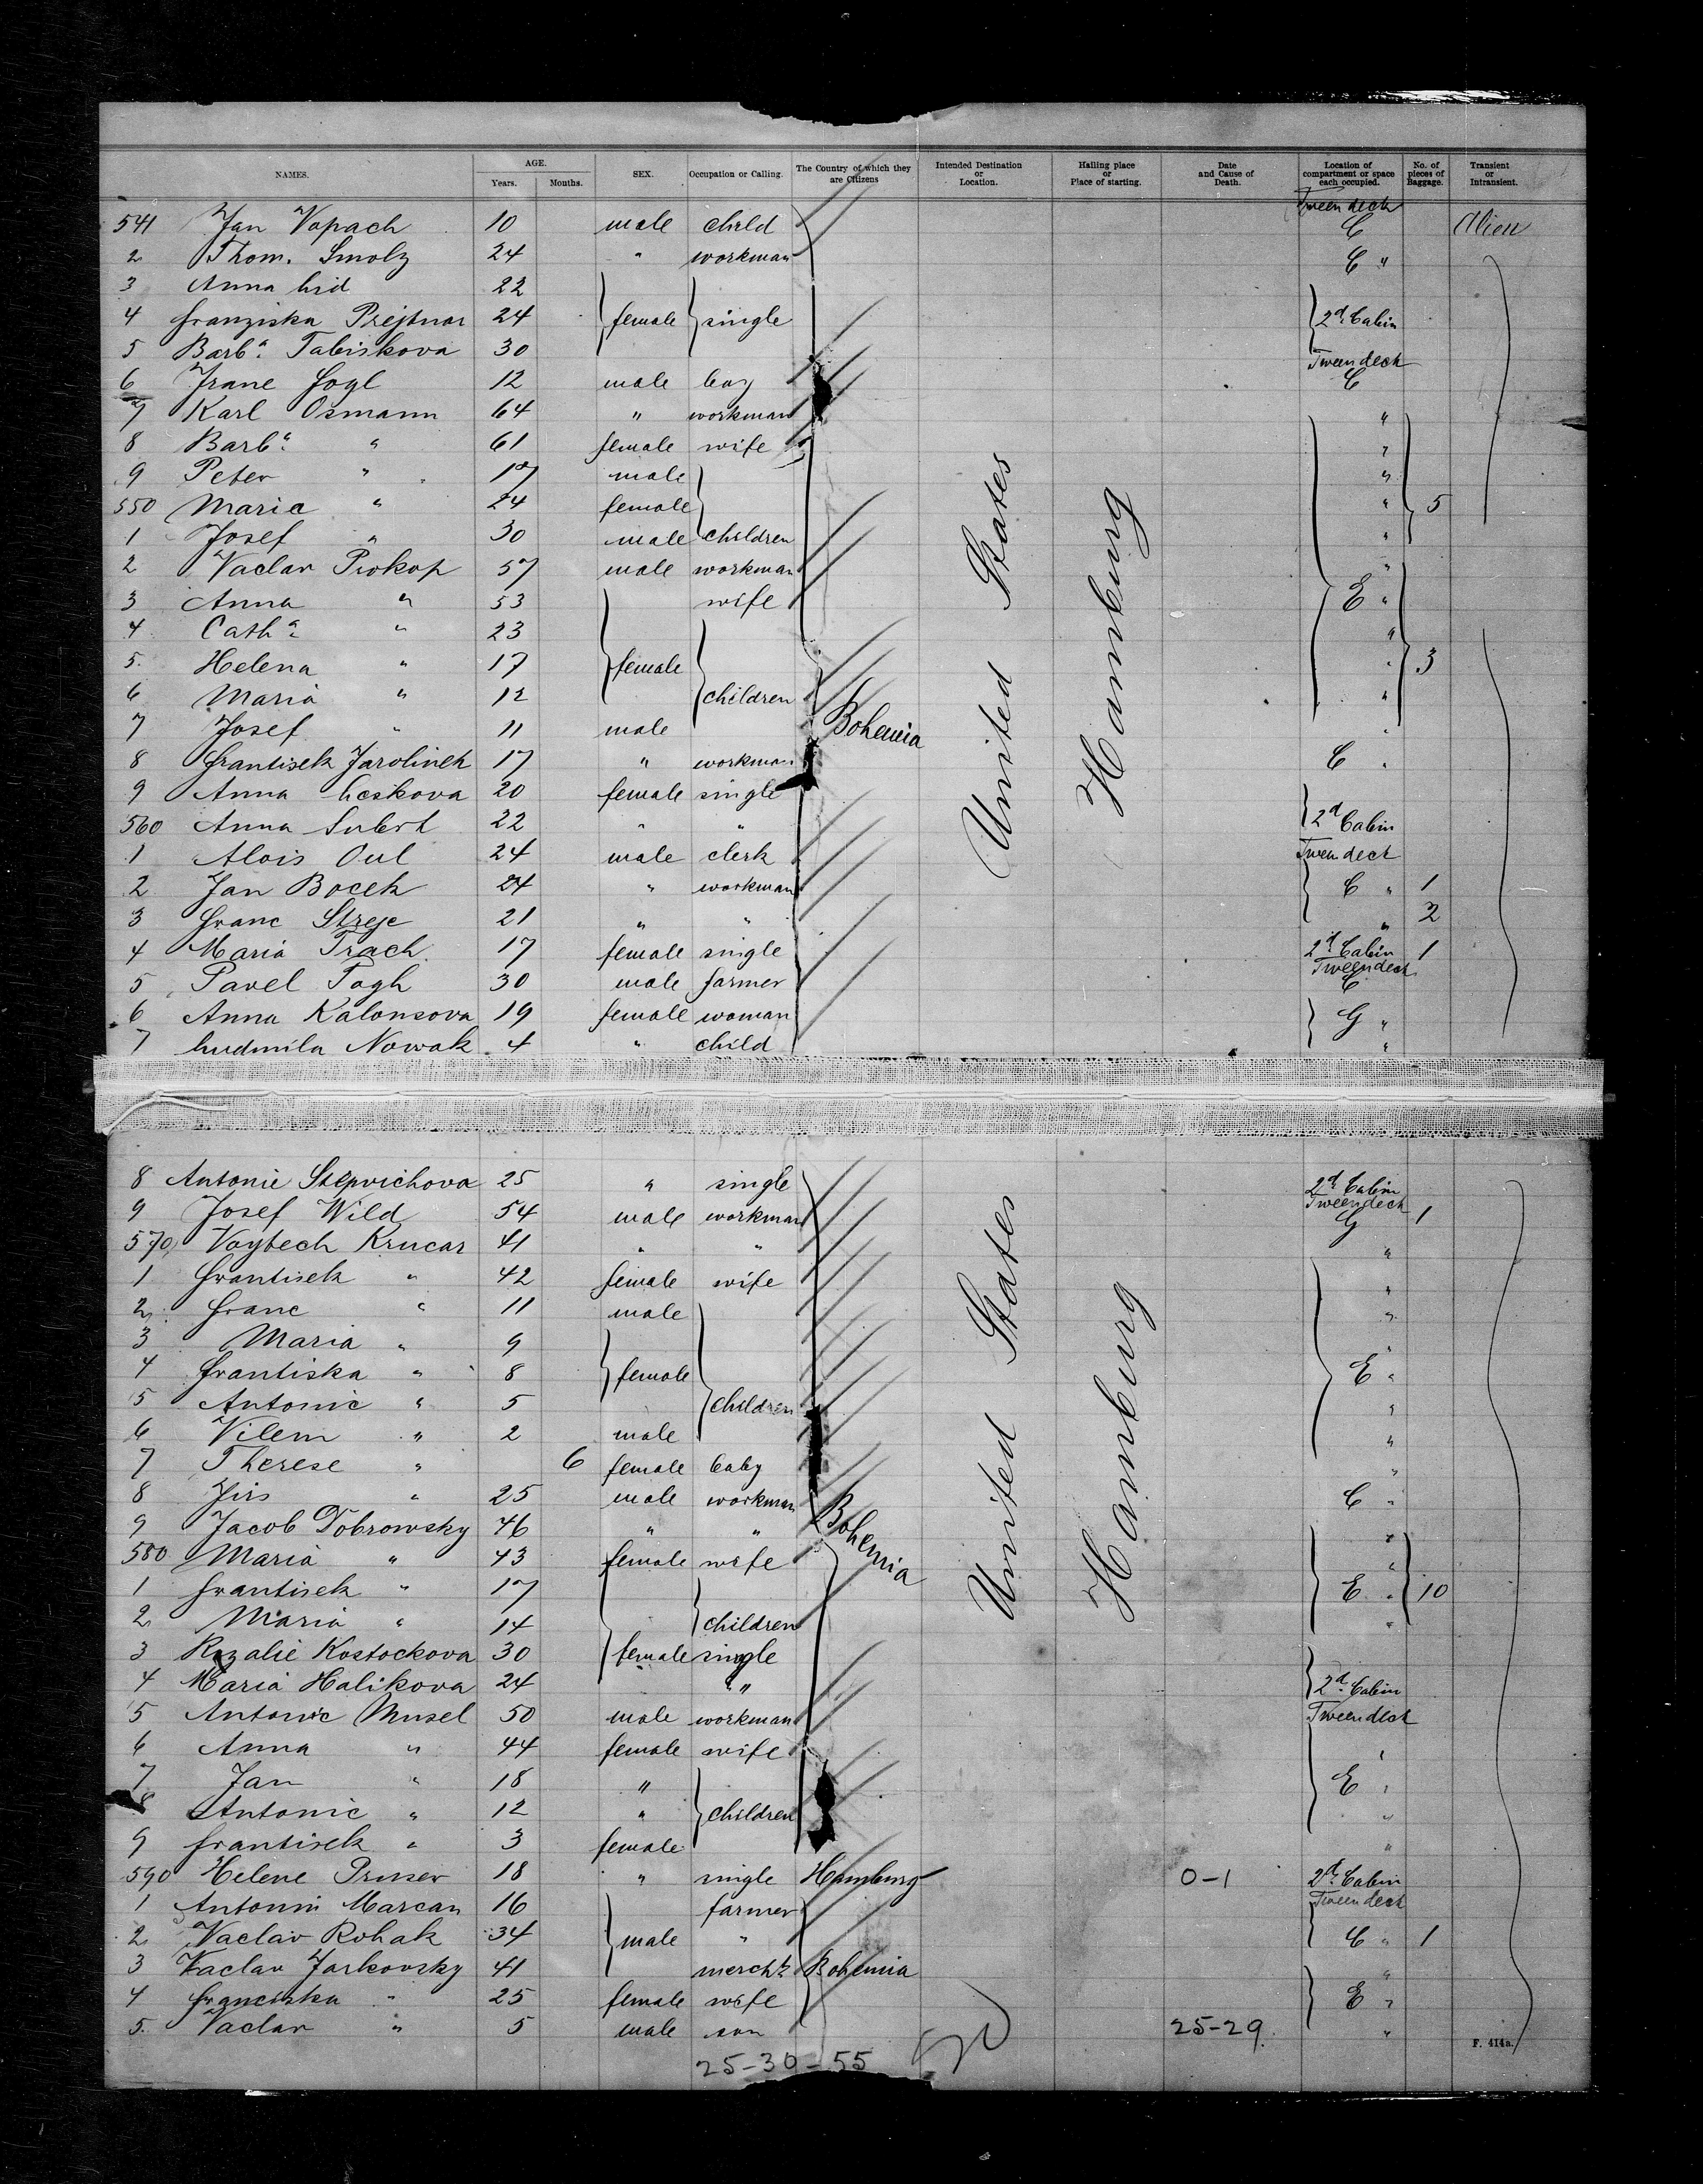 NAMES. AGE. Years. Months. SEX. Occupation or Calling. The Country of which they are Citizens Intended Destination or Location. Hailing place or Place of starting. Date and Cause of Death. Location of compartment or space each occupied. No. of pieces of Baggage. Transient or Intransient.
Tween deck
541 Jan Vopach 10 male child C Alien
2 Thom. Smolz 24 " workman C "
3 Anna 22
4 Franziska Prejtnar 24 female single 2d Cabin
5 Barba. Tabiskova 30 Tween deck
6 Franc Fogl 12 male boy C
7 Karl Osmann 64 " workman "
8 Barba. " 61 female wife "
9 Peter " 17 male "
550 Maria " 24 female " 5
1 Josef " 30 male children "
2 Vaclav Prokop 57 male workman "
3 Anna " 53 wife E "
4 Catha " 23 "
5 Helena " 17 female " 3
6 Maria " 12 children "
7 Josef " 11 male Bohemia United States Hamburg "
8 Frantisek Jarolinek 17 " workman C "
9 Anna 20 female single
560 Anna Subert 22 " " 2d Cabin
1 Alois Oul 24 male clerk Tween deck
2 Jan Bocek 24 " workman C " 1
3 Franc Streje 21 " " " 2
4 Maria Trach 17 female single 2d Cabin 1
5 Pavel Togh 30 male farmer Tween deck C
6 Anna Kalousova 19 female woman G "
7 Ludmila Nowak 4 " child "
8 Antonie 25 " single 2d Cabin
9 Josef Wild 54 male workman Tween deck G 1
570 Voytech Krucar 41 " " "
1 Frantisek " 42 female wife "
2 Franc " 11 male "
3 Maria " 9 "
4 Frantiska " 8 female E "
5 Antonie " 5 children "
6 Vilem " 2 male "
7 Therese " 6 female baby "
8 Jirs " 25 male workman C "
9 Jacob Dobrowsky 46 " " Bohemia United States Hamburg "
580 Maria " 43 female wife "
1 Frantisek " 17 E " 10
2 Maria " 14 children "
3 Rozalie Kostockova 30 female single
4 Maria Halikova 24 " " 2d Cabin
5 Antonie Musel 50 male workman Tween deck
6 Anna " 44 female wife "
7 Jan " 18 " E "
8 Antonie " 12 " children "
9 Frantisek " 3 female "
590 Helene Pruser 18 " single Hamburg 0-1 2d Cabin
1 Antonin Marcan 16 farmer Tween deck
2 Vaclav Rohak 34 male " C " 1
3 Vaclav Jarkovsky 41 mercht. Bohemia "
4 Franciska " 25 female wife E "
5 Vaclav " 5 male son 25-29 "
25-30-55
F. 414a.